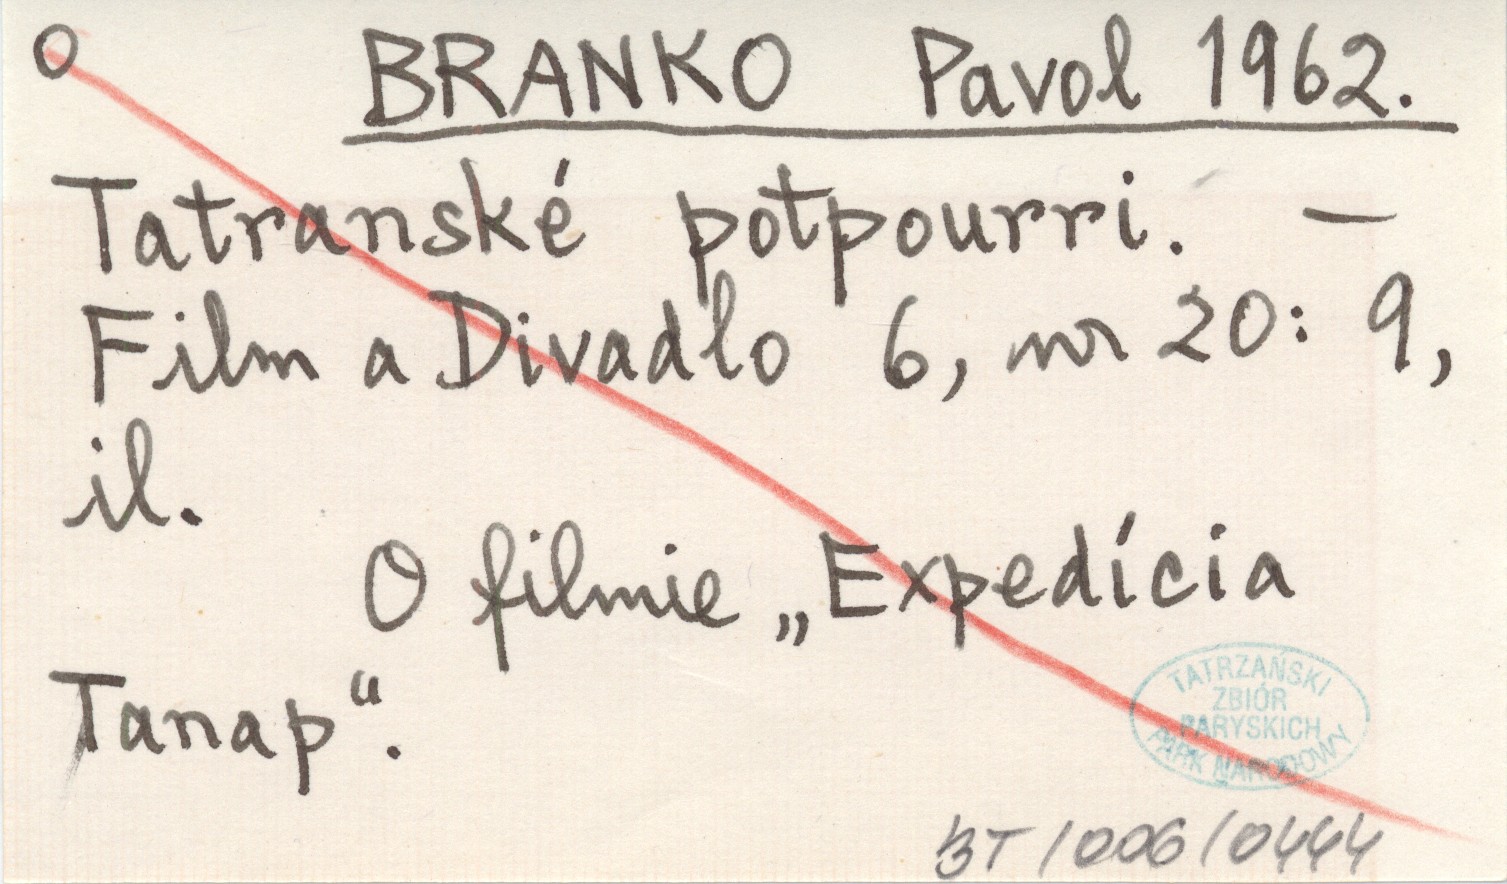 O BRANKO Pavol 1962.
Tatranské potpourri. —
Film a Divadlo 6, nr 20: 9,
il.
O filmie „Expedícia
Tanap“.
TATRZAŃSKI
ZBIÓR
PARYSKICH
PARK NARODOWY
BT/006/0444